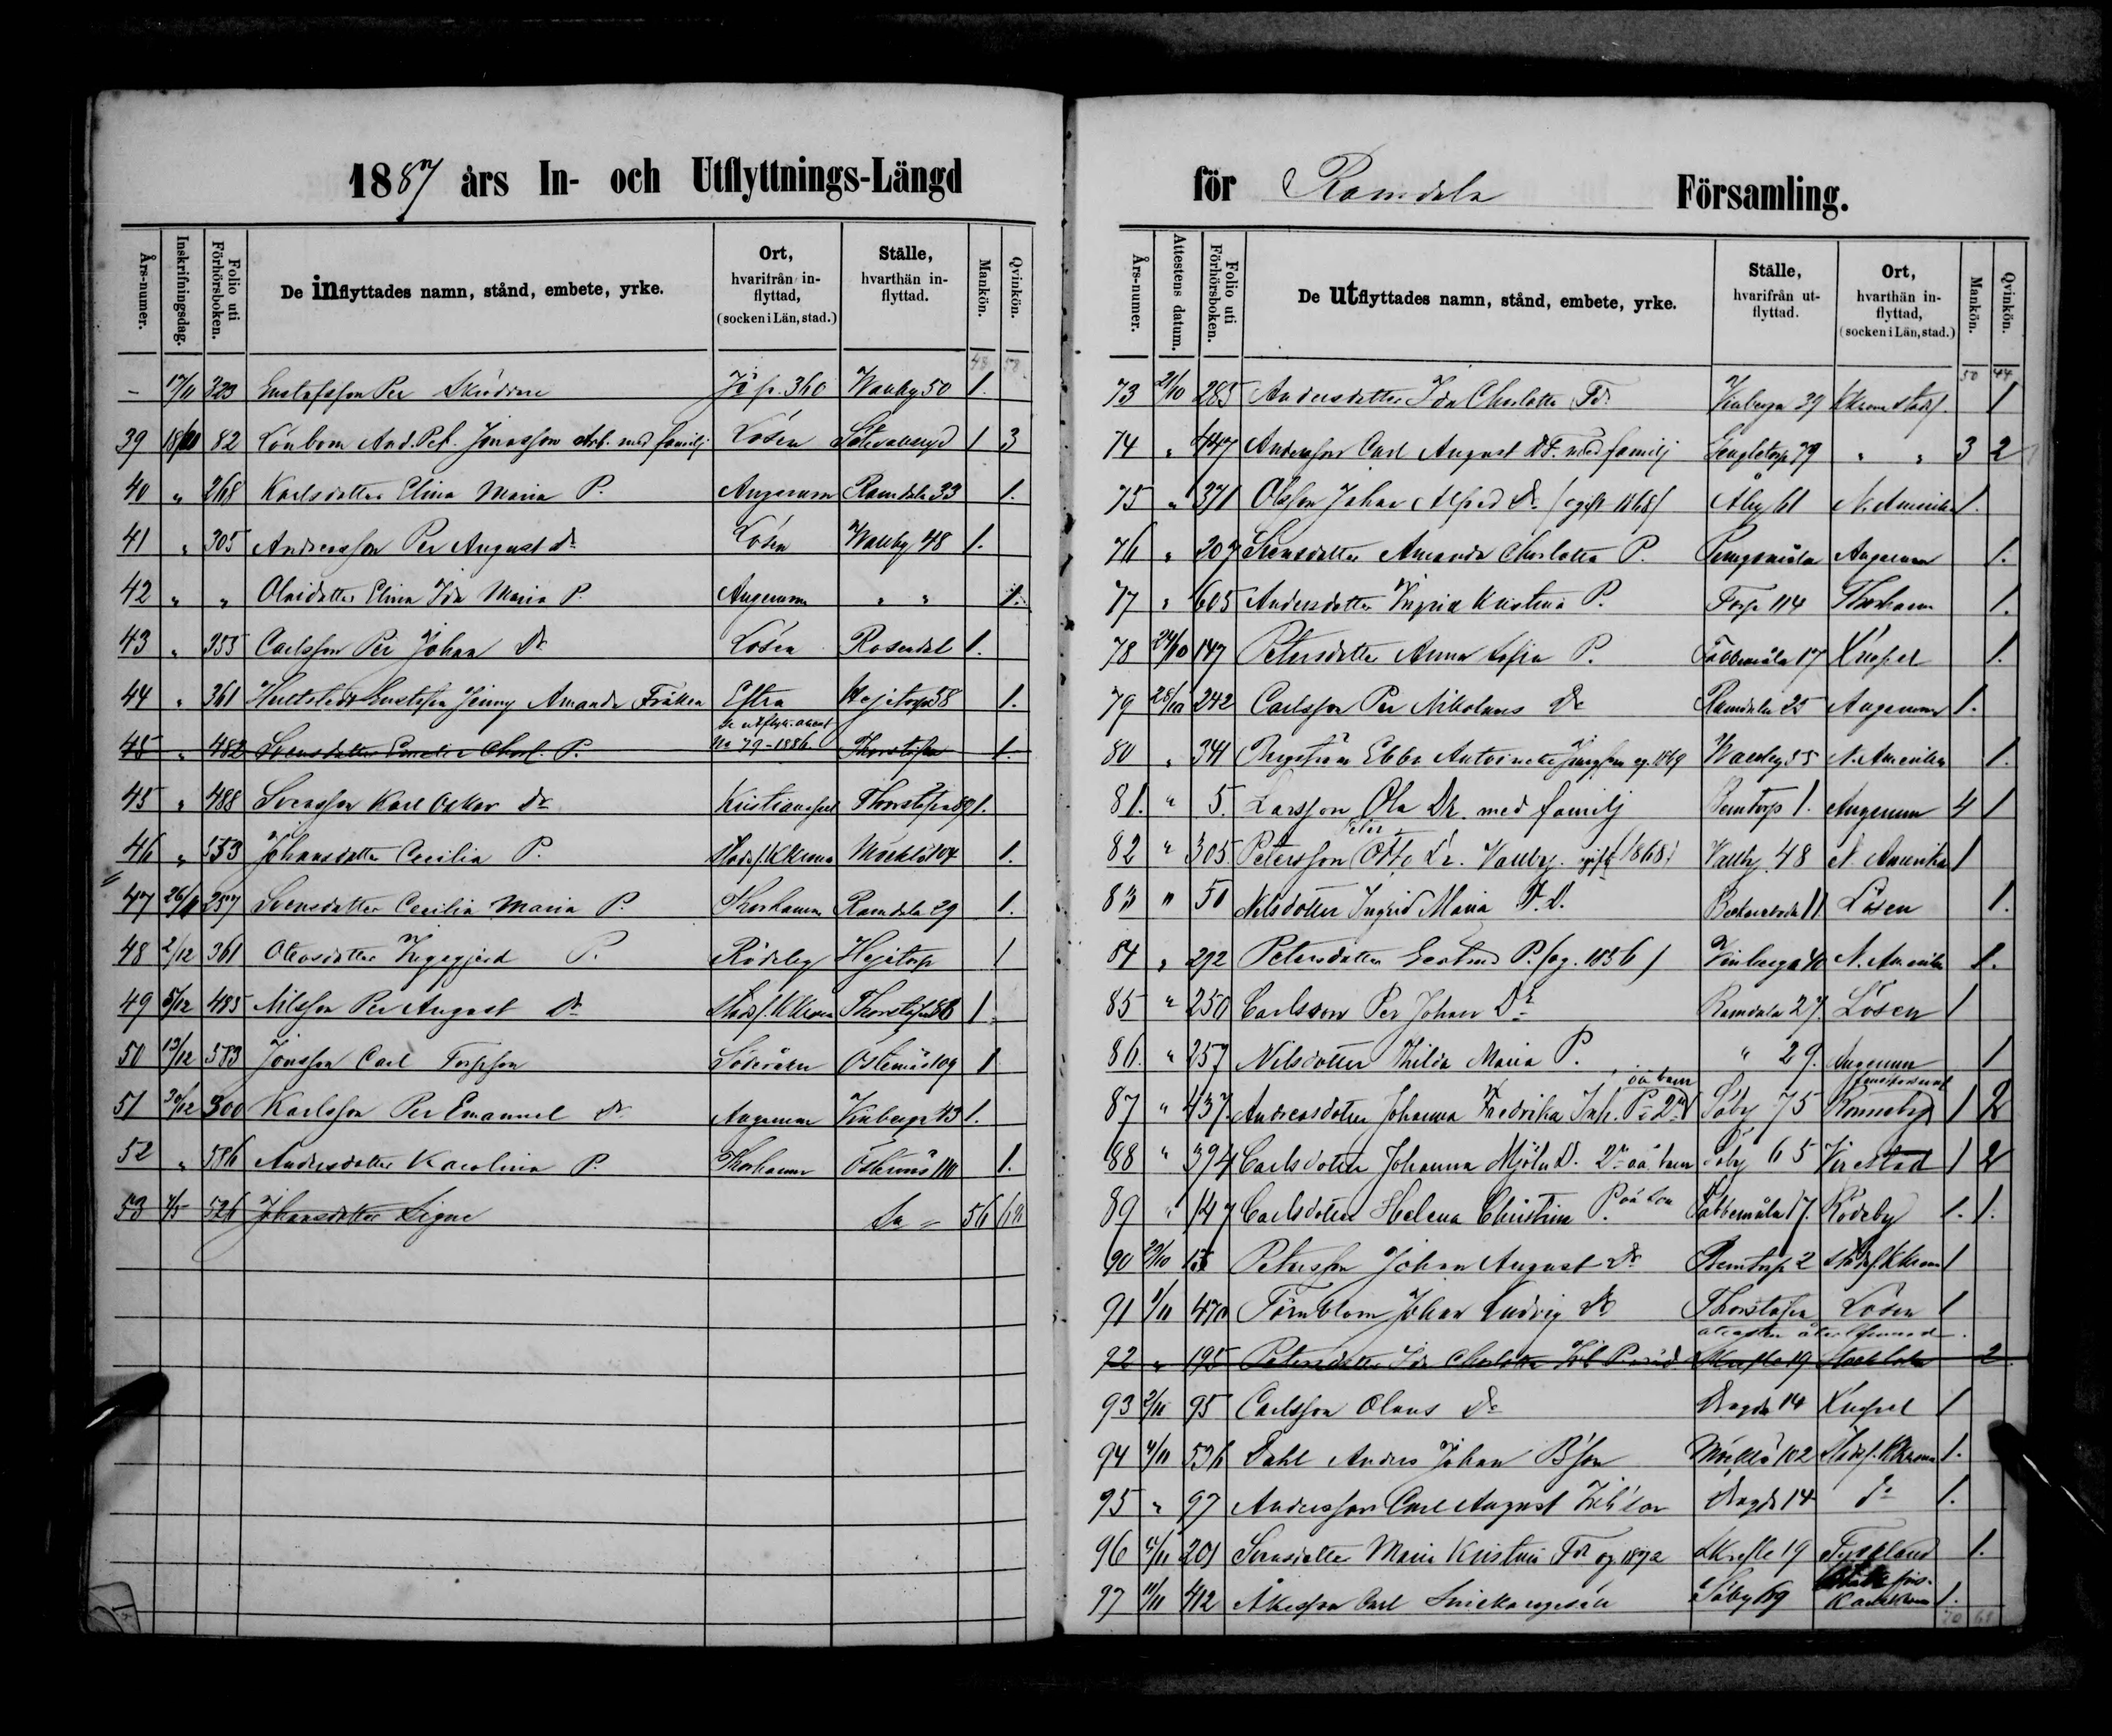 1887 års In- och Utflyttnings-Längd
Års-numer. Inskrifningsdag. Folio uti Förhörsboken. De inflyttades namn, stånd, embete, yrke. Ort, hvarifrån in-flyttad, (socken i Län, stad.) Ställe, hvarthän in-flyttad. Mankön. Qvinkön.
48 58
– 17/11 323 Gustafsson Per 360 Wallby 50 1.
39 18/11 82 Lönbom And. Pet. Jonasson Arb. med familj Lösen 1 3
40 " 268 Karlsdotter Elina Maria P. Augerum Ramdala 33 1.
41 " 305 Andersson Per August Dr Lösen Wallby 48 1.
42 " " Olasdotter Elina Ida Maria P. Augerum " " 1.
43 " 355 Carlsson Per Johan Dr Lösen Rosendal 1.
44 " 361 Hultstedt Gustafva Jenny Amanda Fröken Estra Hejetorp 58 1.
45 " 482 Svensdotter Emelie Charl. P. No 79-1886 Thorstäfva 1.
45 " 488 Svensson Karl Oskar Dr Kristianopel Thorstäfva 89 1.
46 " 553 Johansdotter Cecilia P. Stadsf. KKrona Möcklö 104 1.
47 26/11 257 Svensdotter Cecilia Maria P. Thorhamn Ramdala 29 1.
48 2/12 361 Olasdotter Ingegjerd P. Rödeby Hejetorp 1
49 5/12 485 Nilsson Per August Dr Stadsf. KKrona Thorstäfva 86 1.
50 13/12 583 Jonsson Carl Torpson Söderåkra Östernäs 109 1
51 30/12 300 Karlsson Per Emanuel Dr Augerum Vinberga 43 1.
52 " 586 Andersdotter Karolina P. Thorhamn Östernäs 110 1.
53 4/5 526 Johansdotter Signe Sa 56 69
för Ramdala Församling.
Års-numer. Attestens datum. Folio uti Förhörsboken. De utflyttades namn, stånd, embete, yrke. Ställe, hvarifrån ut-flyttad. Ort, hvarthän in-flyttad, (socken i Län, stad.) Mankön. Qvinkön.
50 44
73 21/10 285 Andersdotter Ida Charlotta Fdr Vinberga 39 KKrona Stadsf. 1
74 " 447 Andersson Carl August Dr. med familj Gengletorp 79 " " 3 2
75 " 371 Olsson Johan Alfred Dr (ogift 1868) Åby 61 N. Amerika 1.
76 " 207 Svensdotter Amanda Charlotta P. Bungamåla Augerum 1.
77 " 605 Andersdotter Ingrid Kristina P. Torp 114 Thorhamn 1.
78 24/10 147 Petersdotter Anna Sofia P. Fäbbemåla 17 K'nopel 1.
79 28/10 242 Carlsson Per Nikolaus Dr Ramdala 25 Augerum 1.
80 " 341 Bergström Ebba Antoinette Jungfru og. 1869 Wallby 55 N. Amerika 1.
81. " 5. Larsson Ola Dr. med familj Bentorp 1. Augerum 4 1
82 " 305 Petersson Peter Otto Dr. Vallby. ogift (1868) Vallby. 48 N. Amerika 1
83 " 50 Nilsdotter Ingrid Maria F.D. 11 Lösen 1.
84 " 292 Petersdotter Gertrud P. (og. 1856) Vinberga 40 N. Amerika 1.
85 " 250 Carlsson Per Johan Dr Ramdala 27. Lösen 1
86. " 257 Nilsdotter Thilda Maria P. " 29. Augerum 1
87 " 437. Andreasdotter Johanna Fredrika Inh. P. oä barn Säby 75 Ronneby 1 2
88 " 394 Carlsdotter Johanna Mjöln D. oä barn Säby 65 Virestad 1 2
89 " 147 Carlsdotter Helena Christina P. oä son Fäbbemåla 17. Rödeby 1. 1.
90 29/10 13 Petersson Johan August Dr Bentorp 2 Stadsf. KKrona 1
91 1/11 470 Törnblom Johan Ludvig Dr Thorstäfva Lösen 1
92 " 195 Petersdotter Ida Charlotta Skrefle 19 Stockholm 2
93 2/11 95 Carlsson Olaus Dr Dragda 14 K'nopel 1
94 4/11 536 Dahl Anders Johan B'son Möcklö 102 Stadsf. KKrona 1.
95 " 97 Andersson Carl August Dragda 14 do 1.
96 201 Svensdotter Maria Kristina Fdr og 1872 Skrefle 19 Tyskland 1.
97 11/11 412 Åkesson Carl Snickaregesäll Säby 69 Karlskrona 1.
70 68